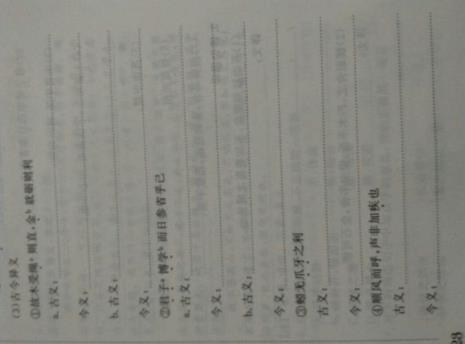 (3)古今异义
①故木受绳a则直,金b就砺则利
a.古义:
今义:
b.古义:
今义:
②君子a博学b而日参省乎己
a.古义:
今义:
b.古义:
今义:
③蚓无爪牙之利
古义:
今义:
④顺风而呼,声非加疾也
古义:
今义:
28